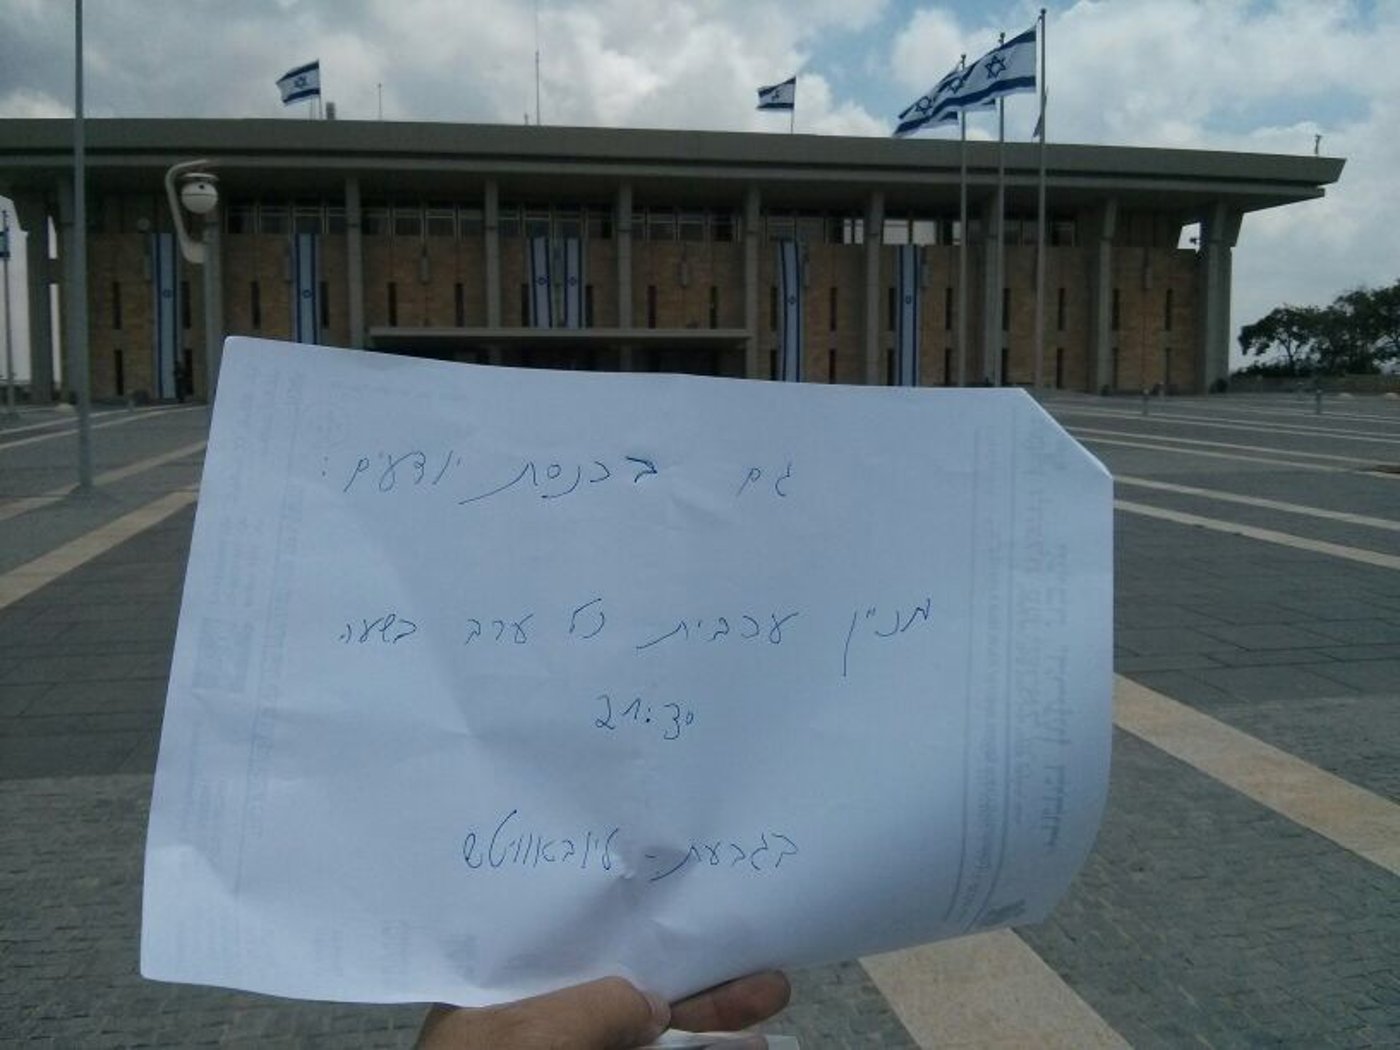 גם בכנסת יודעים:
מנין ערבית כל ערב בשעה
21:30
בגבעת - ליובאוויטש